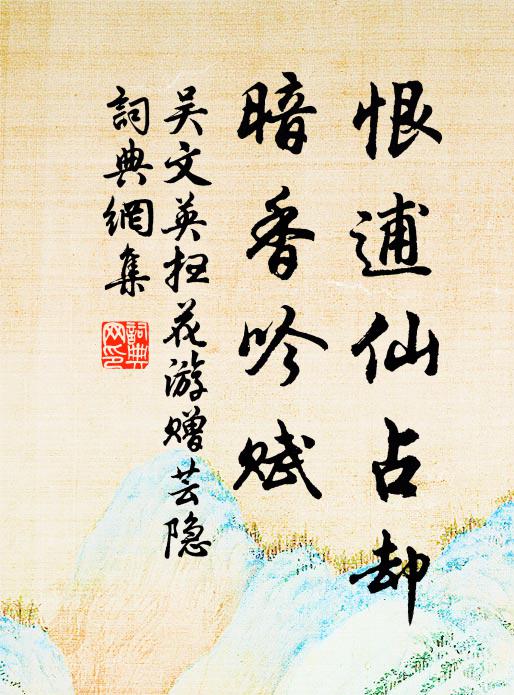 恨逋仙占却
暗香吟赋
吴文英扫花游赠芸隐
詞典網集
詞典網印